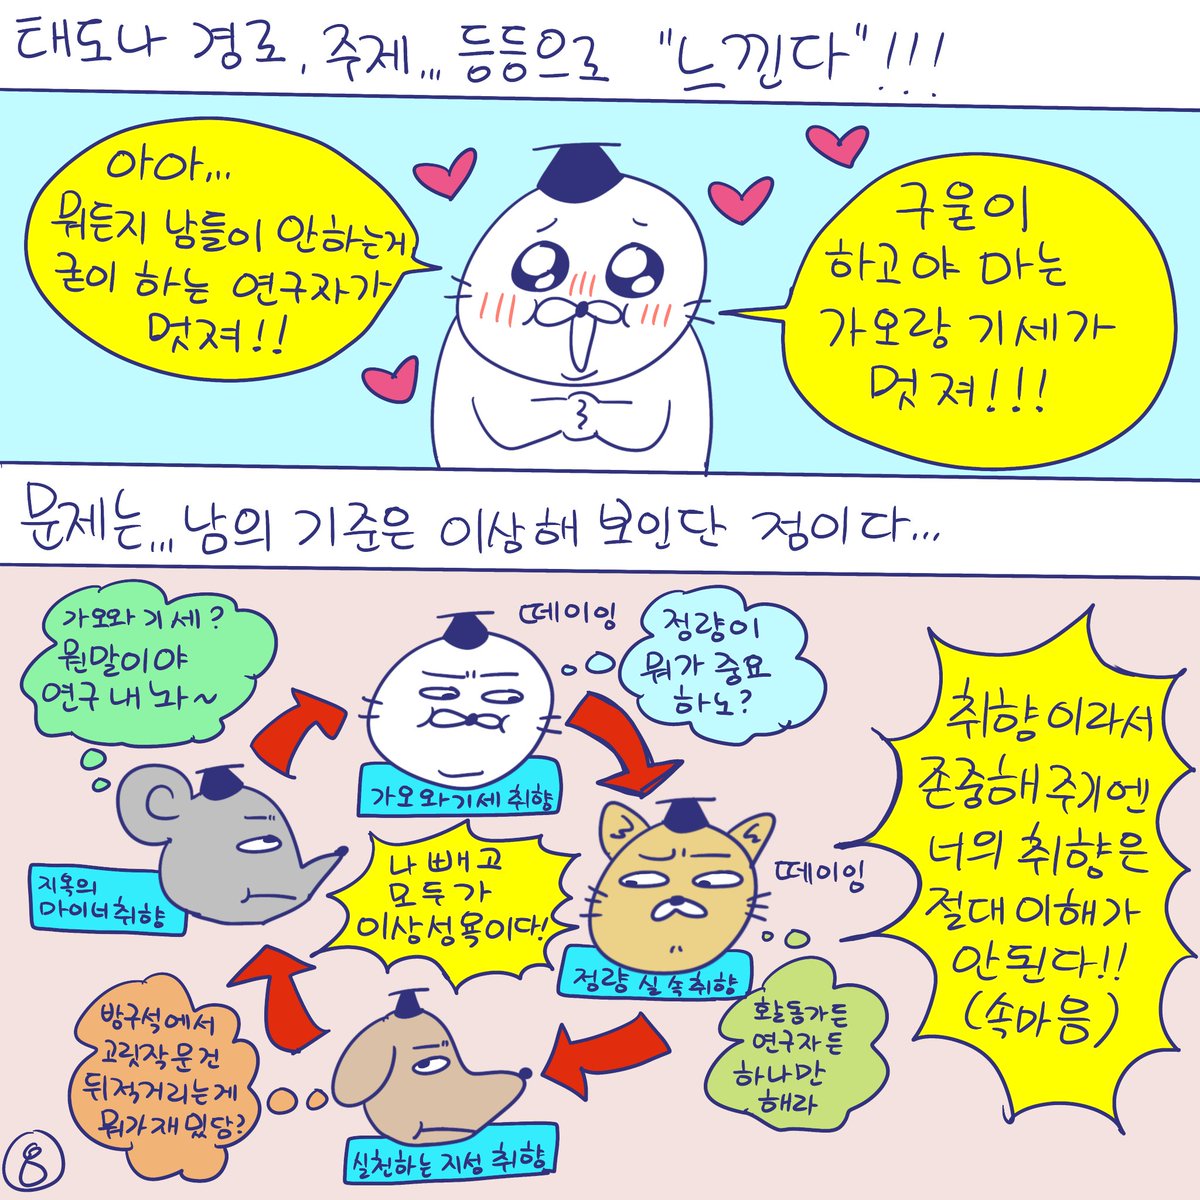 태도나 경로, 주제... 등등으로 "느낀다"!!!
아아...
뭐든지 남들이 안하는거
굳이 하는 연구자가
멋져!!
구울이
하고야 마는
가오랑 기세가
멋져!!!
문제는... 남의 기준은 이상해 보인단 점이다...
가오와 기세?
뭔말이야
연구 내놔~
떼이잉
정량이
뭐가 중요
하노?
가오와 기세 취향
취향이라서
존중해 주기엔
너의 취향은
절대 이해가
안된다!!
(속마음)
지옥의
마이너 취향
나 빼고
모두가
이상성욕이다!
떼이잉
정량 실속취향
방구석에서
고릿작 문건
뒤적거리는게
뭐가 재밌담?
활동가든
연구자든
하나만
해라
실천하는 지성 취향
8